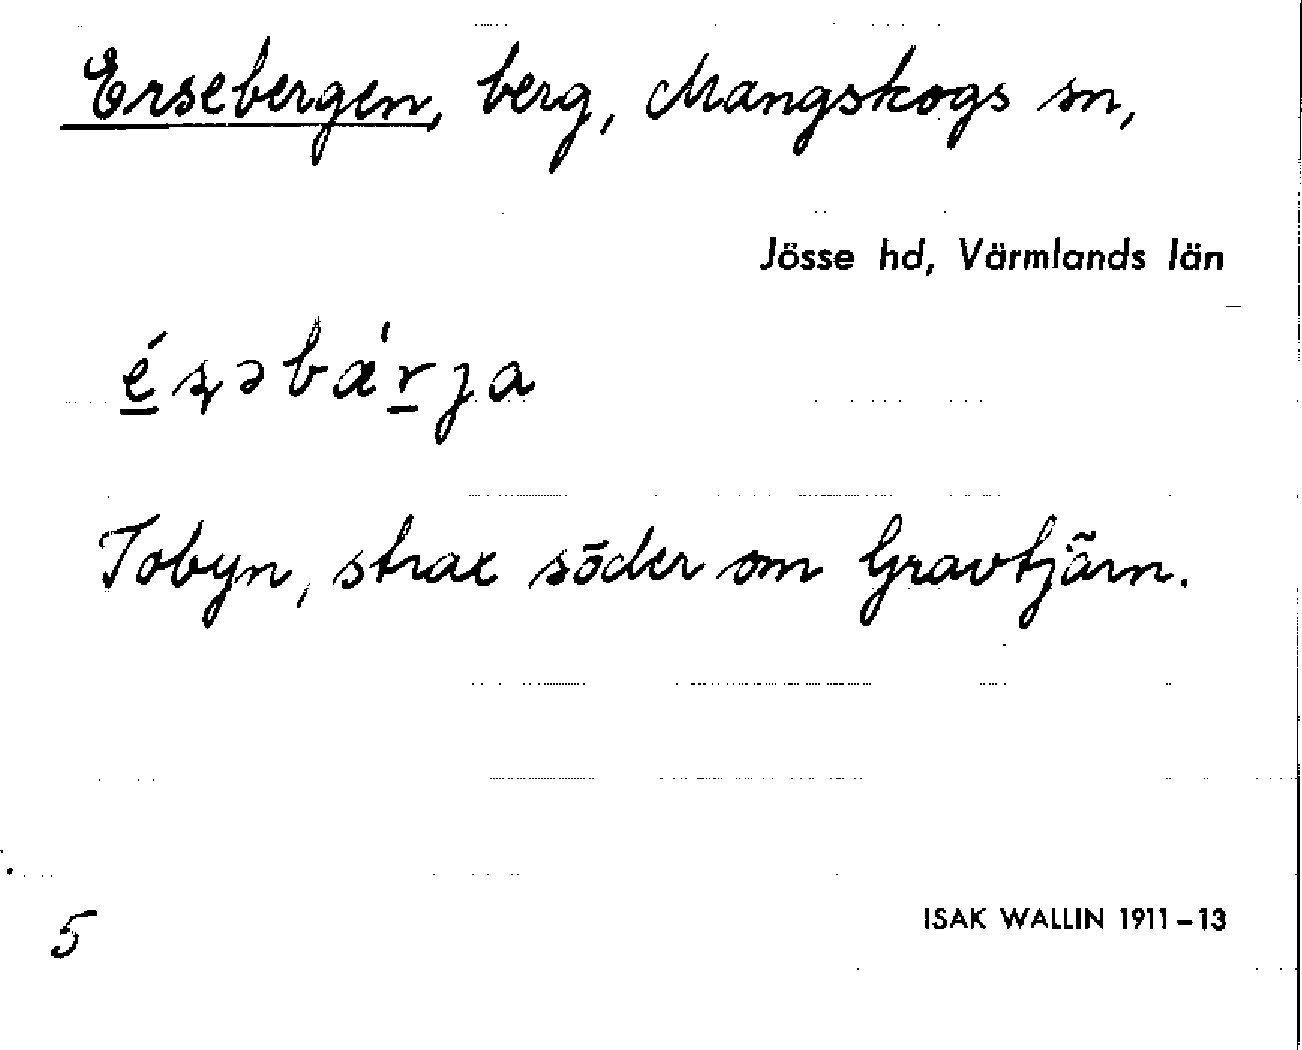 Ersebergen, berg, Mangskogs sn,
Jösse hd, Värmlands län
é̱ʂəbæ̍ṟja
Tobyn, strax söder om Gravtjärn.
5
ISAK WALLIN 1911–13